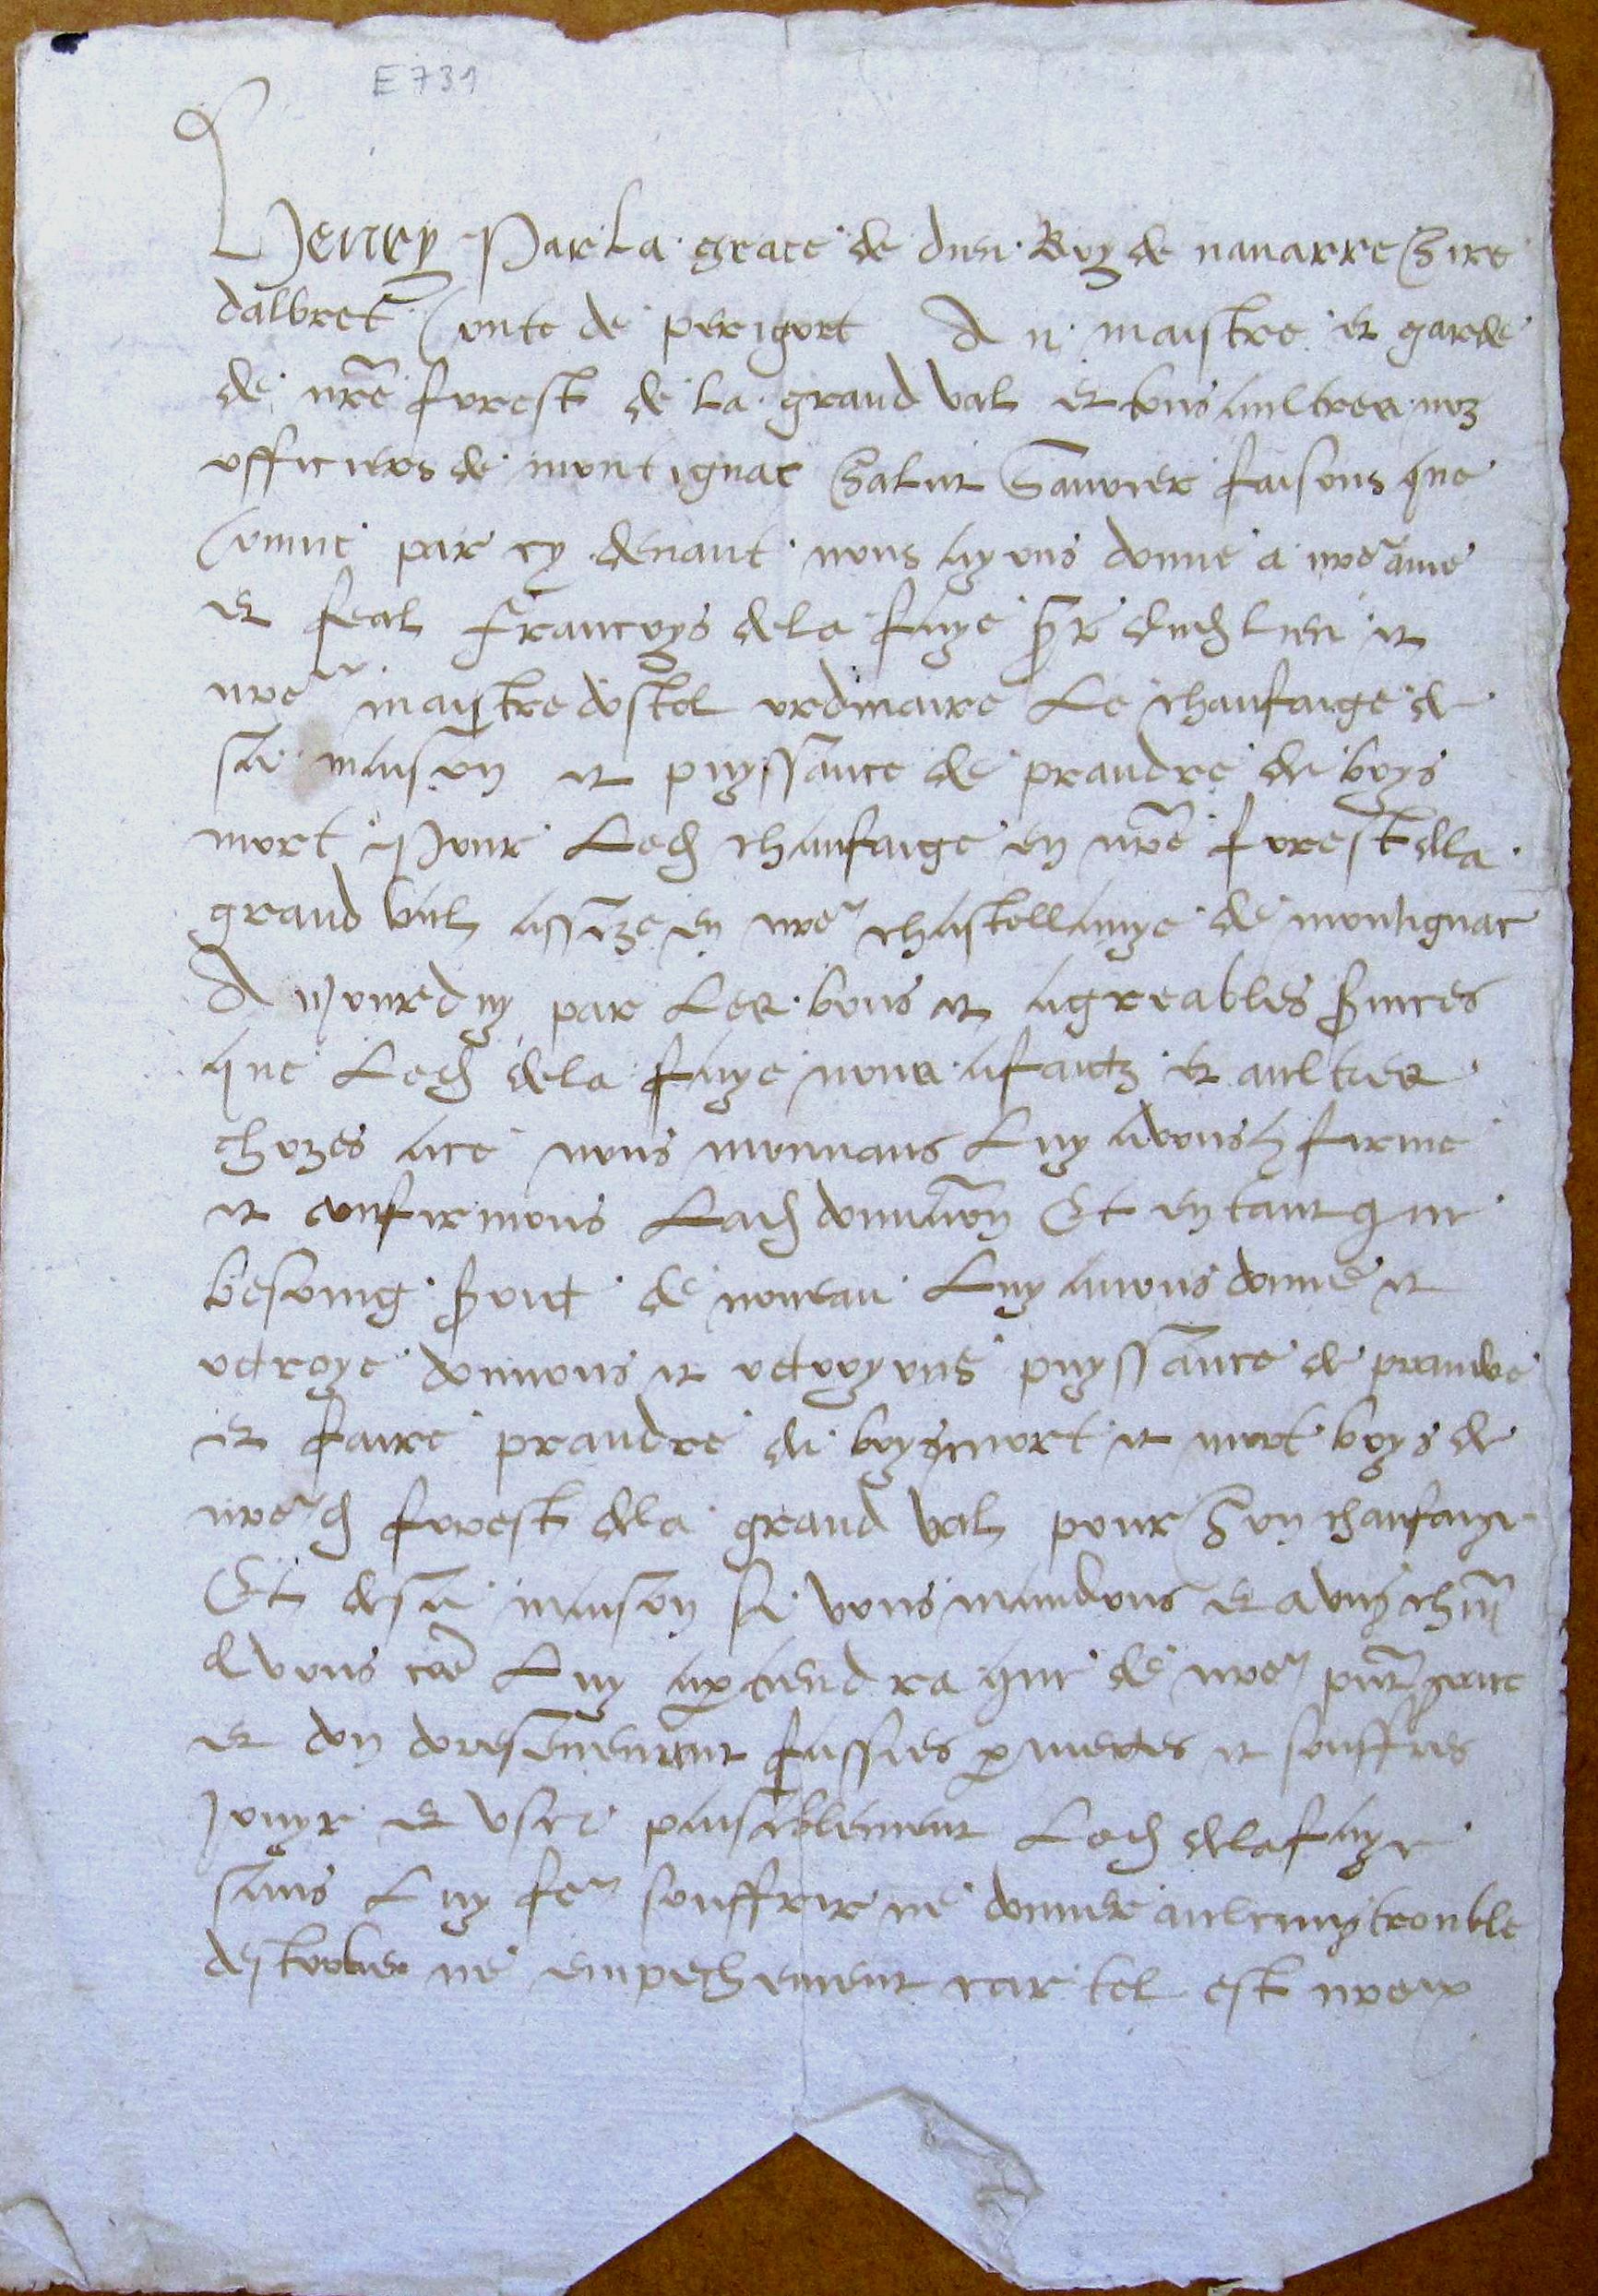 E 731
Henry Par La grace de dieu Roy de navarre Sire
dalbret Conte de perigort Au maistre et garde
de nre forest de La grand val et tous aultres noz
officiers de montignac Salut Scavoir faisons que
Comme par cy devant nous ayons donne a nre ame
et feal Francoys dela faye sr dud lieu et
nre maistre dostel ordinaire Le chaufaige de
sa maison et puyssance de prandre de boys
mort Pour Led chaufaige en nre forest dela
grand val assize en nre chastellanye de montignac
Aujourduy par Les bons et agreables services
que Led dela faye nous a faictz et aultres
chozes ace nous mouvans Luy avons confirme
et confirmons Lad donnation Et en tant que
besoing seroit de nouveau Luy avons donne et
octroye donnons et octroyons puyssance de prandre
et faire prandre du boys mort et mort boys de
nred forest dela grand val pour Son chaufaige
Et de sa maison Si vous mandons et a ung chun
de vous coe Luy apartiendra que de nre pnt grace
et don doresenevent fassies permetes et souffres
Jouyr et user paisiblement Led dela faye
sans Luy fe souffrir ne donner aulcung trouble
destorbier ne empechement car tel est nre